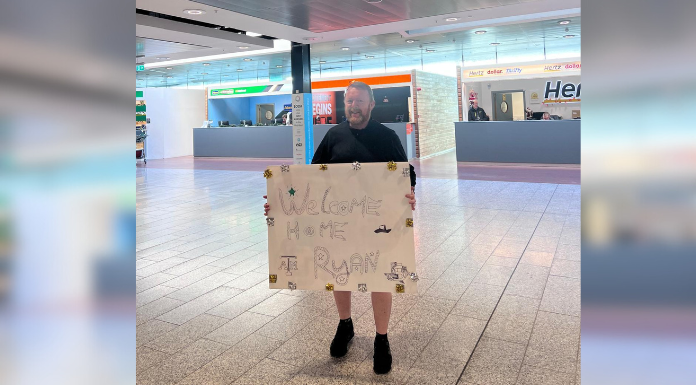 Hertz dollar. Thrifty Hertz dollar.
Her
EGINS
WelcOME
HOME
RyAN